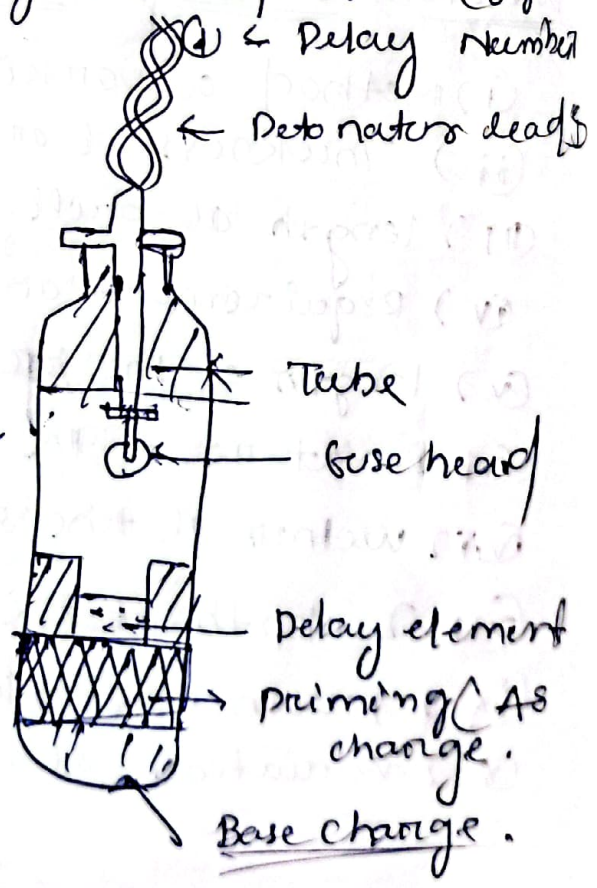 ① ← Delay Number
← Detonator leads
Tube
fuse head
Delay element
Priming (As
charge.
Base charge.